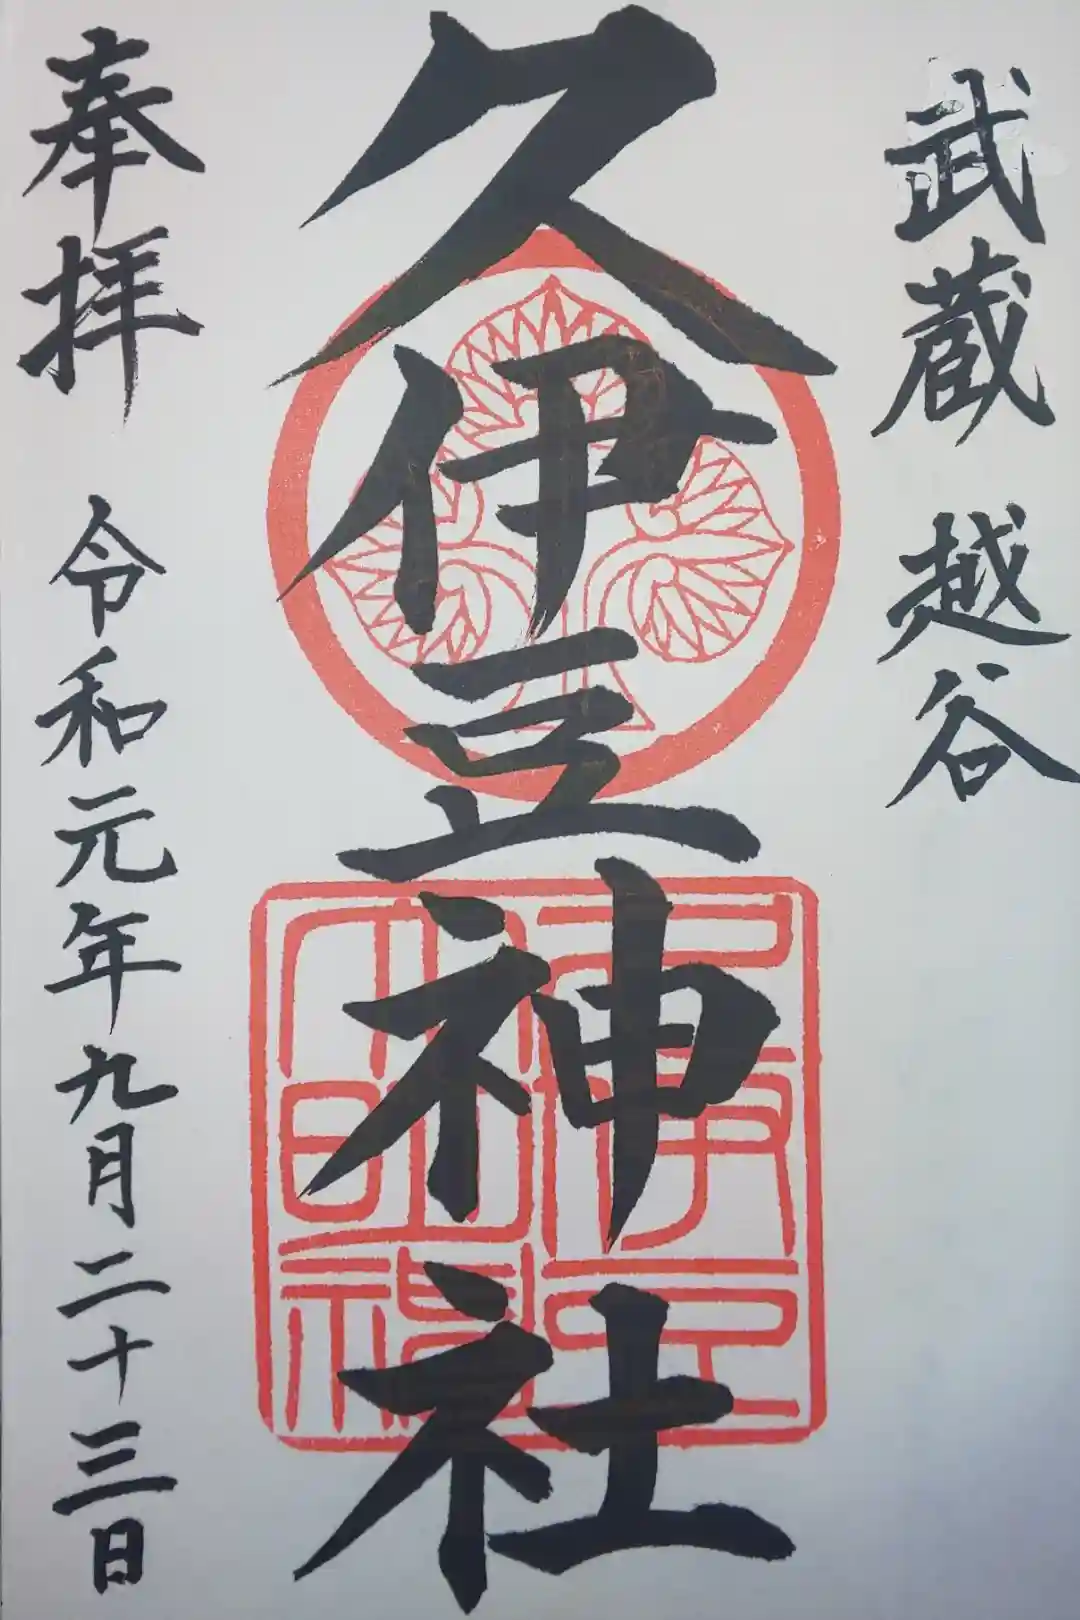 武蔵 越谷
久伊豆神社
奉拝 令和元年九月二十三日
久伊豆
大明神